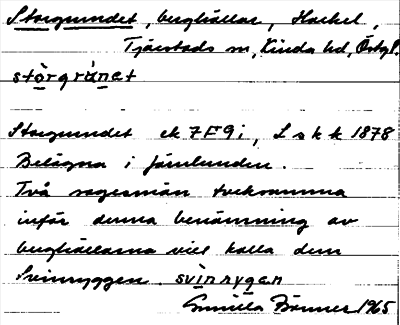 Storgrundet, berghällar, Hackel,
Tjärstads sn, Kinda hd, Östgl.
stòrgrùnet
Storgrundet ek 7F9i, Lskk 1878
Belägna i Järnlunden.
Två sagesmän tveksamma
inför denna benämning av
berghällarna vill kalla dem
Svinryggen. svìnrygen
Gunilla Broner 1965